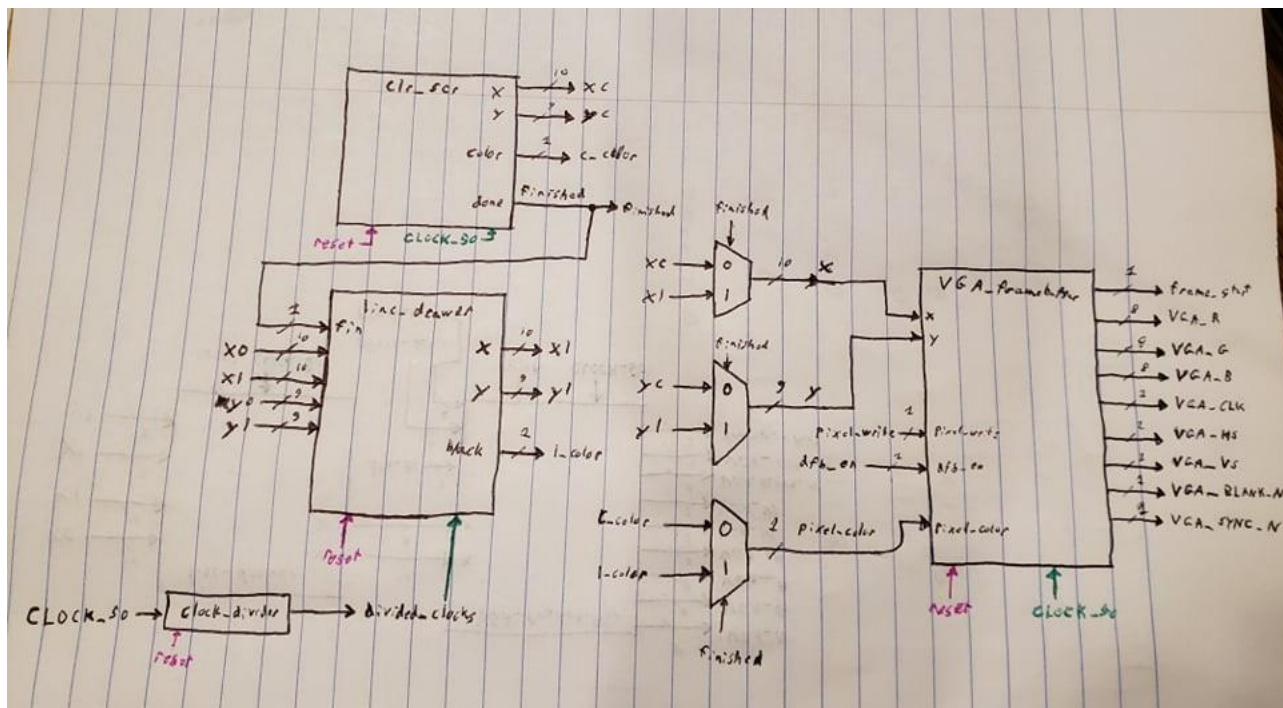 clr_scr
x
10
xc
y
9
yc
color
1
c_color
done
finished
finished
reset
CLOCK_50
line_drawer
1
fin
x0
10
x1
10
y0
9
y1
9
x
10
xl
y
9
yl
black
1
l_color
reset
CLOCK_50
clock_divider
divided_clocks
reset
finished
xc
0
xl
1
10
x
finished
yc
0
yl
1
9
y
c_color
0
l_color
1
1
pixel_color
finished
VGA_framebuffer
x
y
pixel_write
1
pixel_write
dfb_en
1
dfb_en
pixel_color
reset
CLOCK_50
1
frame_start
8
VGA_R
8
VGA_G
8
VGA_B
1
VGA_CLK
1
VGA_HS
1
VGA_VS
1
VGA_BLANK_N
1
VGA_SYNC_N